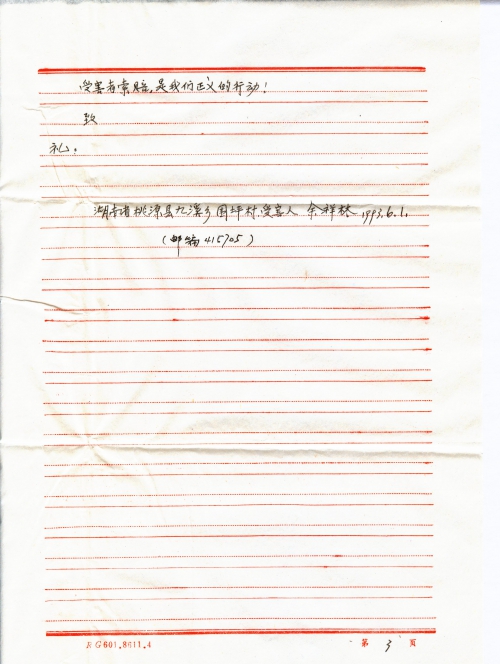 受害者索赔,是我们正义的行动!
致
礼。
湖南省桃源县九溪乡围坪村.受害人 余祥林 1993.6.1.
(邮编415705)
RG601.8611.4
第 3 页